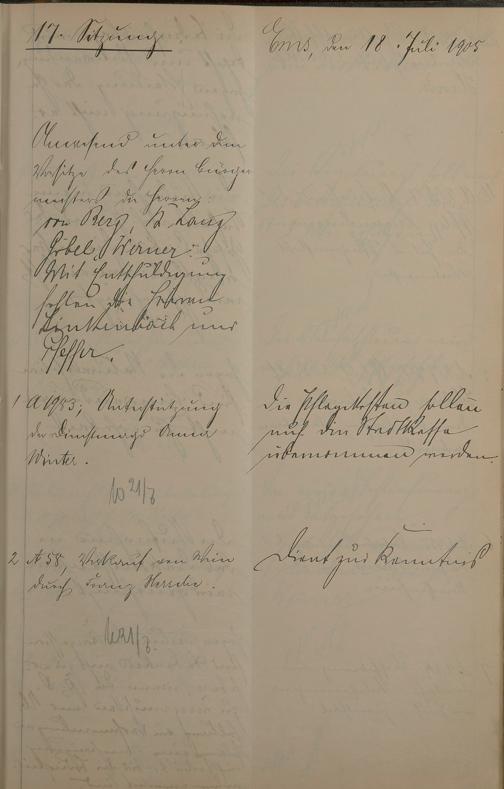 17. Sitzung
Ems, den 18. Juli 1905
Anwesend unter dem
Vorsitze des Herrn Bürger
meisters die Herren:
von Berg, Lang
Göbel, Werner.
Mit Entschuldigung
fehlen die Herren
Linkenbach und
Pfeffer.
1 A 1983; Unterstützung
der Dienstmagd Anna
Winter.
Die Pflegekosten sollen
auf die Stadtkasse
übernommen werden.
21/7
2 A 58, Verkauf von Wein
durch Franz
Dient zur Kenntnis
21/7